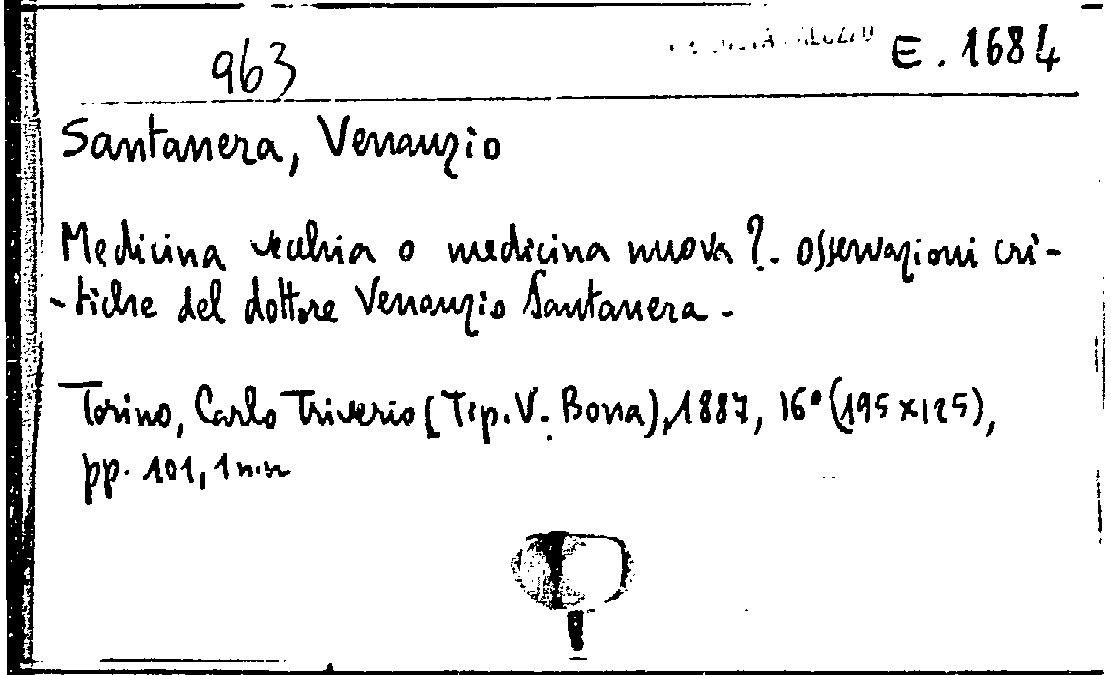 963 E. 1684
Santanera, Venanzio
Medicina vecchia o medicina nuova?. Osservazioni cri-
-tiche del dottore Venanzio Santanera -
Torino, Carlo Triverio (Tip. V. Bona), 1887, 16° (195x125),
pp. 101, 1 n.n.